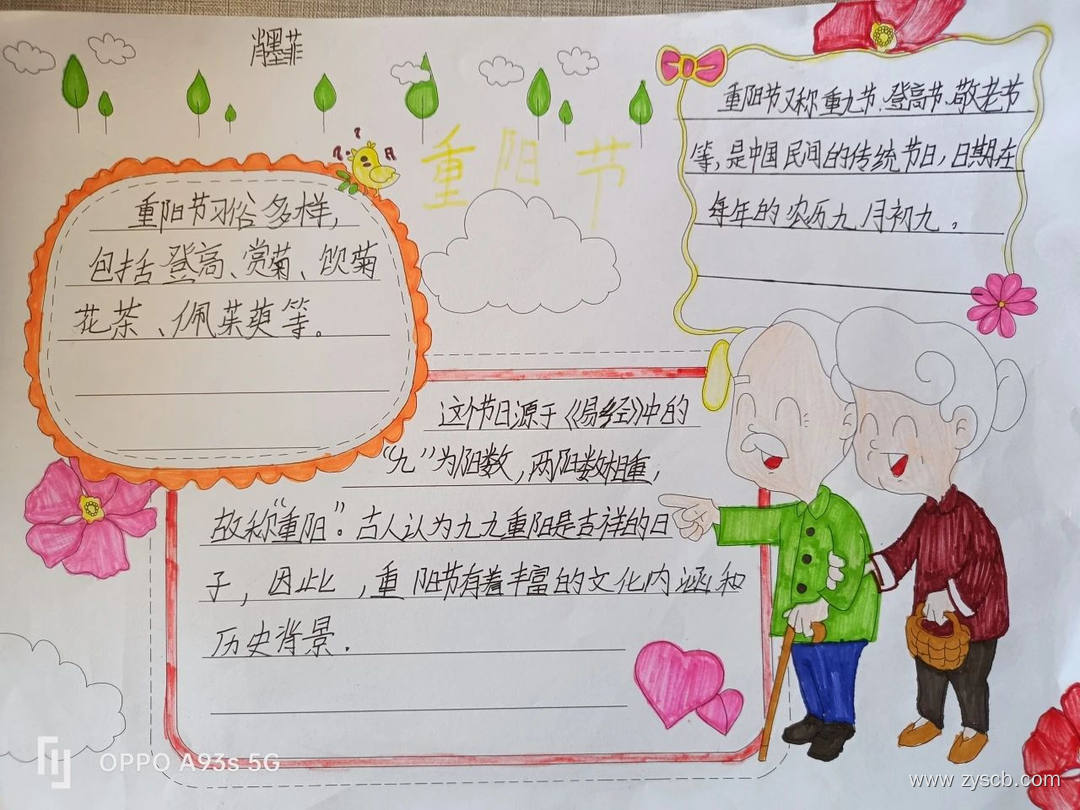 肖墨菲
重阳节
重阳节又称重九节、登高节、敬老节
等,是中国民间的传统节日,日期在
每年的农历九月初九。
重阳节习俗多样,
包括登高、赏菊、饮菊
花茶、佩茱萸等。
这个节日源于《易经》中的
“九”为阳数,两阳数相重,
故称“重阳”。古人认为九九重阳是吉祥的日
子,因此,重阳节有着丰富的文化内涵和
历史背景.
OPPO A93s 5G
www.zyscb.com